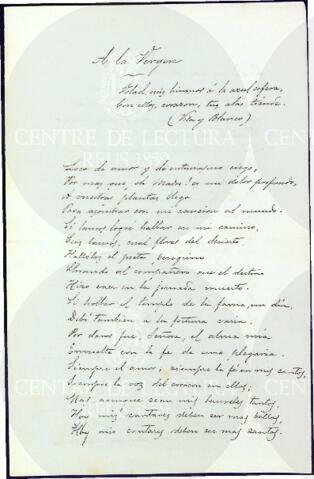 A la Vergen
Volad, mis himnos á la azul esfera,
Con ellos, corazon, tus alas tiende.
(Vila y Blanco)
CENTRE DE LECTURA
REUS 1859
Loco de amor y de entusiasmo ciego,
Por mas que, oh Madre! es mi dolor profundo,
A vuestras plantas llego
Para asombrar con mi cancion al mundo.
Si lauros logro hallar en mi camino,
Seus lauros, cual flores del desierto
Hallolos el poeta peregrino
Llorando al compañero que el destino
Hizo caer en la jornada muerto.
Si hollar el templo de la fama, un dia,
Debí tambien a la fortuna varia
Por daros fué, Señora, el alma mia
Envuelta con la fe de una plegaria.
Siempre el amor, siempre la fé en mis cantos,
Siempre la voz del corazon en ellos;
Mas aunque sean mis laureles tantos,
Hoy mis cantares deben ser mas bellos,
Hoy mis cantares deben ser mas santos.
CENTRE DE LECTURA